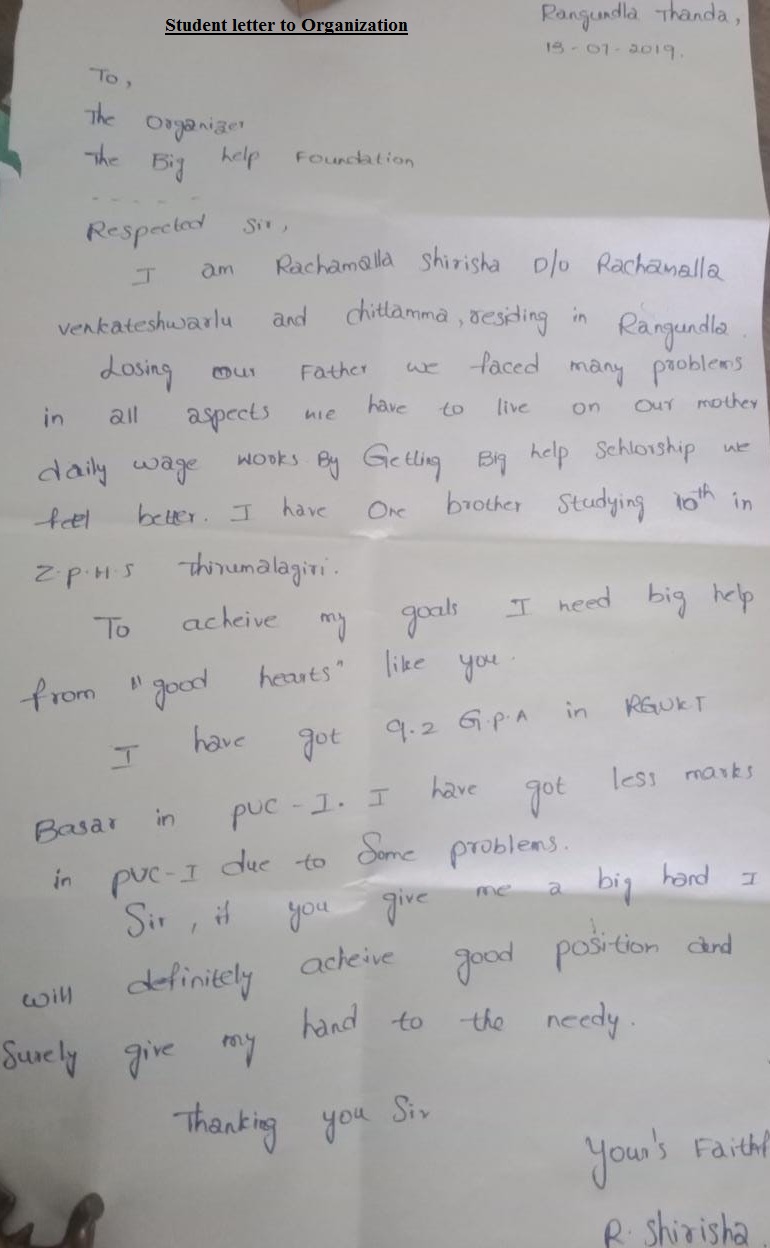 Student letter to Organization
Rangundla Thanda,
19-07-2019.
To,
The Organizer
The Big help Foundation
Respected Sir,
I am Rachamalla Shirisha D/o Rachamalla
venkateshwarlu and chittamma, residing in Rangundla.
Losing our Father we faced many problems
in all aspects we have to live on our mother
daily wage works By Getting Big help Schlorship we
feel better. I have One brother Studying 10th in
Z.P.H.S Thirumalagiri.
To acheive my goals I need big help
from "good hearts" like you.
I have got 9.2 G.P.A in RGUKT
Basar in PUC-I. I have got less marks
in PUC-I due to Some problems.
Sir, if you give me a big hand I
will definitely acheive good position and
Surely give my hand to the needy.
Thanking you Sir
Your's Faithf
R. Shirisha